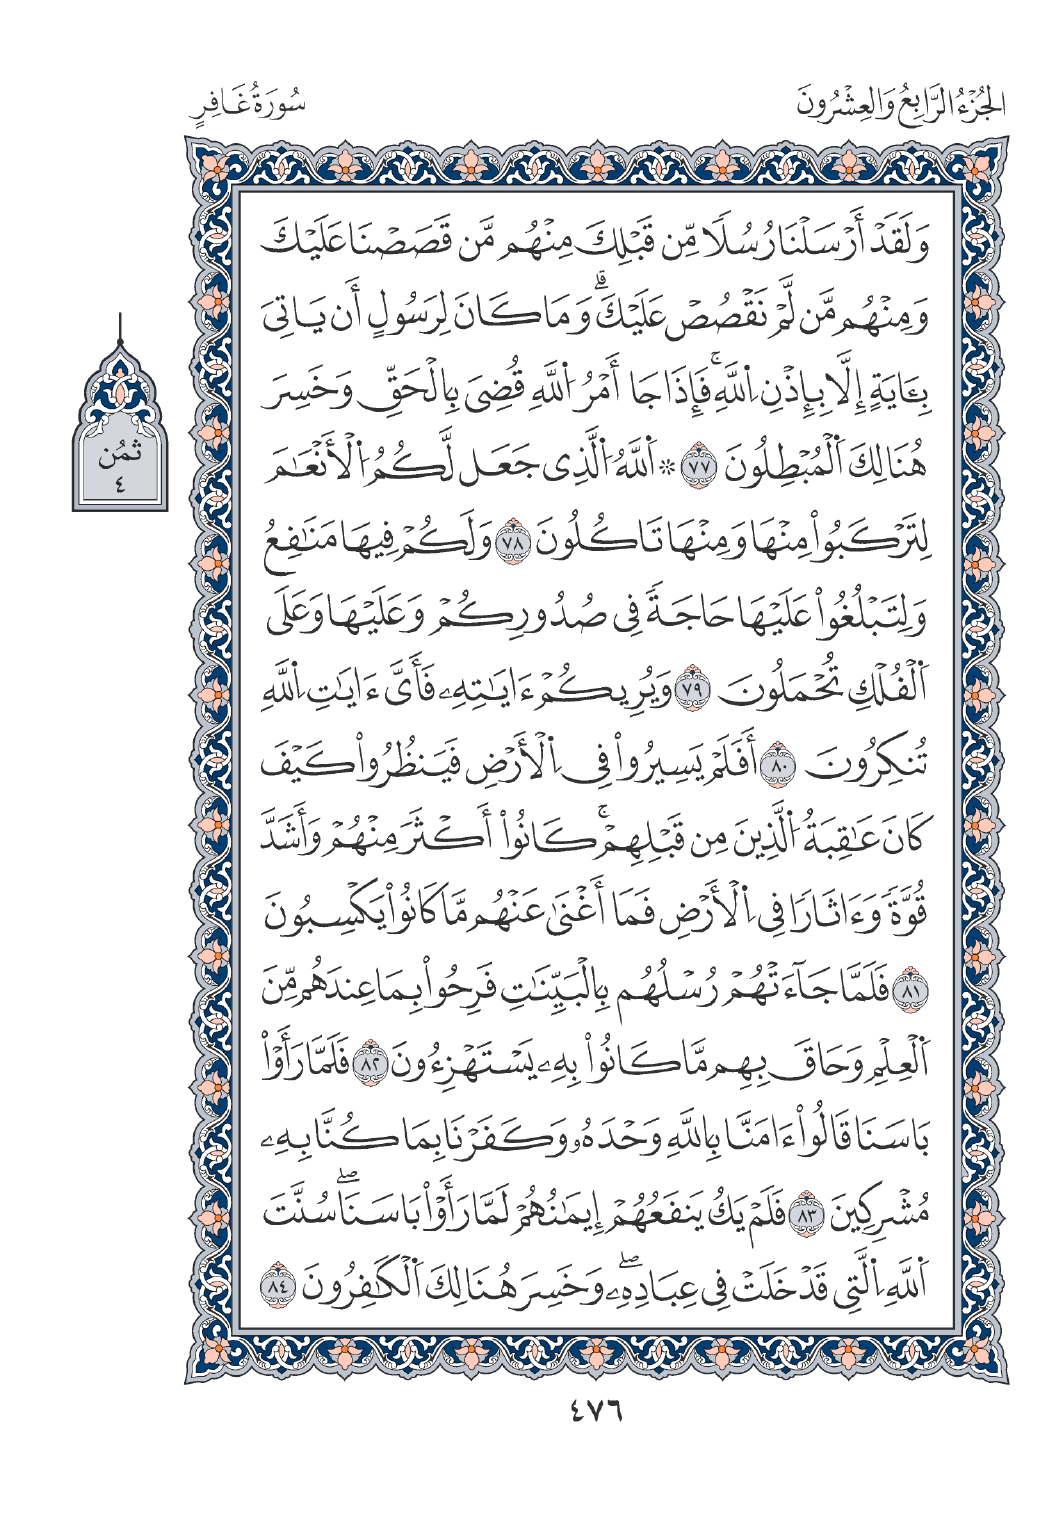 الجُزْءُ الرَّابِعُ وَالعِشْرُونَ
سُورَةُ غَافِرٍ
وَلَقَدْ أَرْسَلْنَا رُسُلًا مِّن قَبْلِكَ مِنْهُم مَّن قَصَصْنَا عَلَيْكَ
وَمِنْهُم مَّن لَّمْ نَقْصُصْ عَلَيْكَۗ وَمَا كَانَ لِرَسُولٍ أَن يَاتِىَ
بِـَٔايَةٍ إِلَّا بِإِذْنِ اِ۬للَّهِۚ فَإِذَا جَا أَمْرُ اُ۬للَّهِ قُضِىَ بِالْحَقِّ وَخَسِرَ
هُنَالِكَ اَ۬لْمُبْطِلُونَ ٧٧ ۞ اَ۬للَّهُ اُ۬لَّذِى جَعَل لَّكُمُ اُ۬لْأَنْعَٰمَ
لِتَرْكَبُواْ مِنْهَا وَمِنْهَا تَاكُلُونَ ٧٨ وَلَكُمْ فِيهَا مَنَٰفِعُ
وَلِتَبْلُغُواْ عَلَيْهَا حَاجَةً فِى صُدُورِكُمْ وَعَلَيْهَا وَعَلَى
اَ۬لْفُلْكِ تُحْمَلُونَ ٧٩ وَيُرِيكُمْ ءَايَٰتِهِۦ فَأَىَّ ءَايَٰتِ اِ۬للَّهِ
تُنكِرُونَ ٨٠ أَفَلَمْ يَسِيرُواْ فِى اِ۬لْأَرْضِ فَيَنظُرُواْ كَيْفَ
كَانَ عَٰقِبَةُ اُ۬لَّذِينَ مِن قَبْلِهِمْۚ كَانُواْ أَكْثَرَ مِنْهُمْ وَأَشَدَّ
قُوَّةً وَءَاثَارًا فِى اِ۬لْأَرْضِ فَمَا أَغْنَىٰ عَنْهُم مَّا كَانُواْ يَكْسِبُونَ
٨١ فَلَمَّا جَآءَتْهُمْ رُسْلُهُم بِالْبَيِّنَٰتِ فَرِحُواْ بِمَا عِندَهُم مِّنَ
اَ۬لْعِلْمِ وَحَاقَ بِهِم مَّا كَانُواْ بِهِۦ يَسْتَهْزِءُونَ ٨٢ فَلَمَّا رَأَوْاْ
بَاسَنَا قَالُواْ ءَامَنَّا بِاللَّهِ وَحْدَهُۥ وَكَفَرْنَا بِمَا كُنَّا بِهِۦ
مُشْرِكِينَ ٨٣ فَلَمْ يَكُ يَنفَعُهُمْ إِيمَٰنُهُمْ لَمَّا رَأَوْاْ بَاسَنَاۖ سُنَّتَ
اَ۬للَّهِ اِ۬لَّتِى قَدْ خَلَتْ فِى عِبَادِهِۦۖ وَخَسِرَ هُنَالِكَ اَ۬لْكَٰفِرُونَ ٨٤
ثمُن
٤
٤٧٦